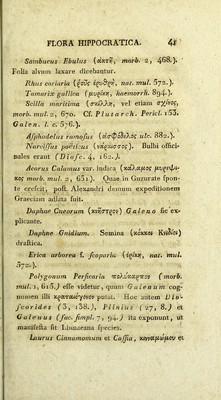 FLORA HIPPOCRATICA. 41
Sambucus Ebulus (ἀκτῆ, morb. 2, 468.).
Folia alvum laxare dicebantur.
Rhus coriaria (ῥοῦς ἐρυθρὴ, nat. mul. 572.).
Tamarix gallica (μυρίκη, haemorrh. 894.).
Scilla maritima (σκίλλα, vel etiam σχῖνος,
morb. mul. 2, 670. Cf. Plutarch. Pericl. 153.
Galen. l. c. 576.).
Asphodelus ramosus (ἀσφόδελος ulc. 882.).
Narcissus poeticus (νάρκισσος). Bulbi offici-
nales erant (Diosc. 4, 162.).
Acorus Calamus var. indica (κάλαμος μυρεψι-
κος morb. mul. 2, 651). Quae in Guzurate spon-
te crescit, post Alexandri demum expeditionem
Graeciam adlata fuit.
Daphne Cneorum (κνῆστρον) Galeno sic ex-
plicante.
Daphne Gnidium. Semina (κόκκοι Κνίδιοι)
drastica.
Erica arborea s. scoparia (ἐρίκη, nat. mul.
572.).
Polygonum Persicaria πολύκαρπος (morb.
mul. 1, 615.) esse videtur, quum Galenum cog-
nomen illi κραταιόγονος putat. Hoc autem Dio-
scorides (3, 138.), Plinius (27, 8.) et
Galenus (fac. simpl. 7, 94.) ita exponunt, ut
manifesta sit Linnaeana species.
Laurus Cinnamomum et Cassia, κινναμώμου et